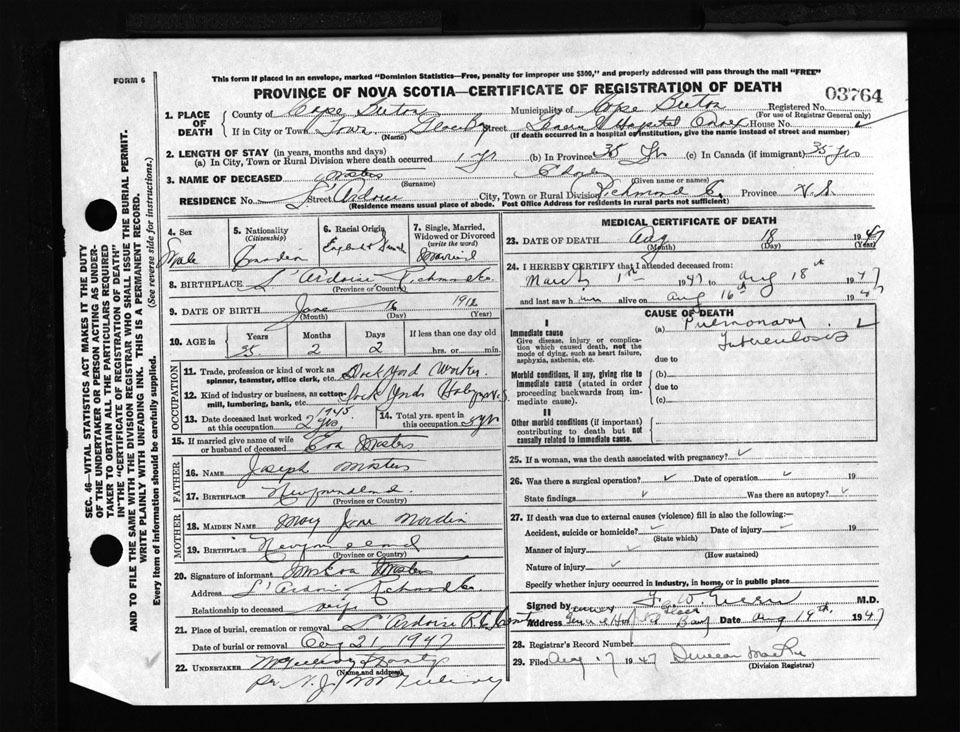 This form if placed in an envelope, marked "Dominion Statistics—Free, penalty for improper use $300," and properly addressed will pass through the mail "FREE"
FORM 6
PROVINCE OF NOVA SCOTIA—CERTIFICATE OF REGISTRATION OF DEATH
03764
1. PLACE OF DEATH
County of Cape Breton Municipality of Cape Breton Registered No.
(For use of Registrar General only)
If in City or Town Town Glace Bay Street General Hospital House No.
(Name) (If death occurred in a hospital or institution, give the name instead of street and number)
2. LENGTH OF STAY (in years, months and days)
(a) In City, Town or Rural Division where death occurred 1 yr (b) In Province 35 Yrs (c) In Canada (if immigrant) 35 yrs
3. NAME OF DECEASED Masters Charles
(Surname) (Given name or names)
RESIDENCE No. Street L'Ardoise City, Town or Rural Division Richmond Co. Province N.S.
(Residence means usual place of abode. Post Office Address for residents in rural parts not sufficient)
4. Sex Male
5. Nationality (Citizenship) Canadian
6. Racial Origin English
7. Single, Married, Widowed or Divorced (write the word) Married
8. BIRTHPLACE L'Ardoise, Richmond Co.
(Province or Country)
9. DATE OF BIRTH June 16 1912
(Month) (Day) (Year)
10. AGE in Years Months Days If less than one day old
35 2 2 hrs. or min.
OCCUPATION
11. Trade, profession or kind of work as spinner, teamster, office clerk, etc. Dock Yard Worker
12. Kind of industry or business, as cotton-mill, lumbering, bank, etc. Dock Yards Halifax N.S.
13. Date deceased last worked at this occupation 1945 2 yrs
14. Total yrs. spent in this occupation 3 yrs
15. If married give name of wife or husband of deceased Eva Masters
FATHER
16. NAME Joseph Masters
17. BIRTHPLACE Newfoundland
(Province or Country)
MOTHER
18. MAIDEN NAME Mary Jane
19. BIRTHPLACE Newfoundland
(Province or Country)
20. Signature of informant Mrs Eva Masters
Address L'Ardoise Richmond Co.
Relationship to deceased wife
21. Place of burial, cremation or removal L'Ardoise R.C.
Date of burial or removal Aug 21, 1947
22. UNDERTAKER
(Name and address)
MEDICAL CERTIFICATE OF DEATH
23. DATE OF DEATH Aug 18 1947
(Month) (Day) (Year)
24. I HEREBY CERTIFY that I attended deceased from:
March 1st 1947 to Aug 18th 1947
and last saw him alive on Aug 16th 1947
CAUSE OF DEATH
I
Immediate cause
Give disease, injury or complication which caused death, not the mode of dying, such as heart failure, asphyxia, asthenia, etc.
(a) Pulmonary Tuberculosis
due to
Morbid conditions, if any, giving rise to immediate cause (stated in order proceeding backwards from immediate cause).
(b)
due to
(c)
II
Other morbid conditions (if important) contributing to death but not causally related to immediate cause.
25. If a woman, was the death associated with pregnancy?
26. Was there a surgical operation? Date of operation 19
State findings Was there an autopsy?
27. If death was due to external causes (violence) fill in also the following:—
Accident, suicide or homicide? Date of injury 19
(State which)
Manner of injury
(How sustained)
Nature of injury
Specify whether injury occurred in industry, in home, or in public place
Signed by M.D.
Address General Hosp Glace Bay Date Aug 19th 1947
28. Registrar's Record Number
29. Filed Aug 1947 Duncan
(Division Registrar)
SEC. 46—VITAL STATISTICS ACT MAKES IT THE DUTY OF THE UNDERTAKER OR PERSON ACTING AS UNDERTAKER TO OBTAIN ALL THE PARTICULARS REQUIRED IN THE "CERTIFICATE OF REGISTRATION OF DEATH" AND TO FILE THE SAME WITH THE DIVISION REGISTRAR WHO SHALL ISSUE THE BURIAL PERMIT.
WRITE PLAINLY WITH UNFADING INK. THIS IS A PERMANENT RECORD.
Every item of information should be carefully supplied. (See reverse side for instructions.)